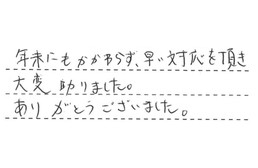 年末にもかかわらず、早い対応を頂き
大変助りました。
ありがとうございました。